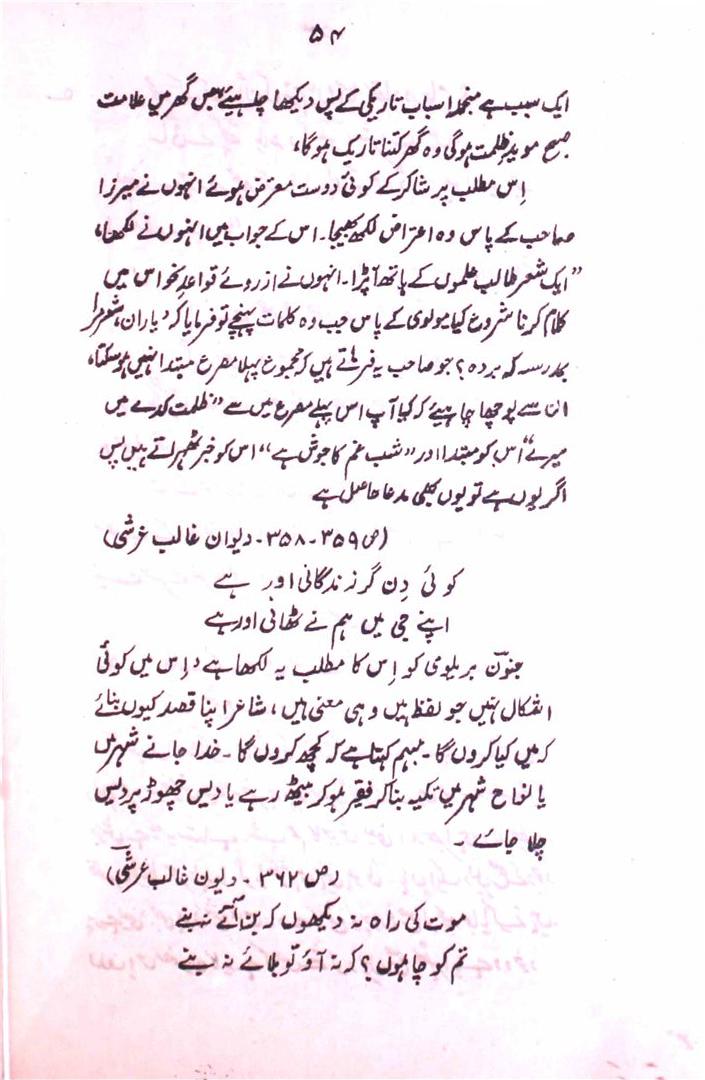 ۵۴
ایک سبب ہے منجملہ اسباب تاریکی کے پس دیکھا چاہیئے جس گھر میں علامت
صبح موید ظلمت ہوگی وہ گھر کتنا تاریک ہوگا،
اِس مطلب پر شاکر کے کوئی دوست معترض ہوئے انہوں نے میرزا
صاحب کے پاس وہ اعتراض لکھ بھیجا۔ اس کے جواب میں انہوں نے لکھا،
”ایک شعر طالب علموں کے ہاتھ آپڑا۔ انہوں نے ازروئے قواعد نحو اس میں
کلام کرنا شروع کیا مولوی کے پاس جب وہ کلمات پہنچے تو فرمایا کہ ”یاران، شعر مرا
بمدرسہ کہ برد؟ جو صاحب یہ فرماتے ہیں کہ مجموع پہلا مصرع مبتدا نہیں ہوسکتا،
ان سے پوچھا چاہیئے کہ کیا آپ اس پہلے مصرع میں سے ”ظلمت کدے میں
میرے“ اس کو مبتدا اور ”شب غم کا جوش ہے“ اس کو خبر ٹھہراتے ہیں پس
اگر یوں ہے تو یوں بھی مدعا حاصل ہے
(ص ۳۵۹۔۳۵۸۔ دیوان غالب عرشی)
کوئی دِن گر زندگانی اور ہے
اپنے جی میں ہم نے ٹھانی اور ہے
جنون بریلوی کو اِس کا مطلب یہ لکھا ہے ”اِس میں کوئی
اشکال نہیں جو لفظ ہیں وہی معنی ہیں، شاعر اپنا قصد کیوں بتائے
کہ میں کیا کروں گا۔ مبہم کہتا ہے کہ کچھ کروں گا۔ خدا جانے شہر میں
یا نواح شہر میں تکیہ بنا کر فقیر ہو کر بیٹھ رہے یا دیس چھوڑ پردیس
چلا جائے۔
(ص ۳۶۲۔ دیون غالب عرشی)
موت کی راہ نہ دیکھوں کہ بن آئے نہ بنے
تم کو چاہوں؟ کہ نہ آؤ تو بلائے نہ بنے